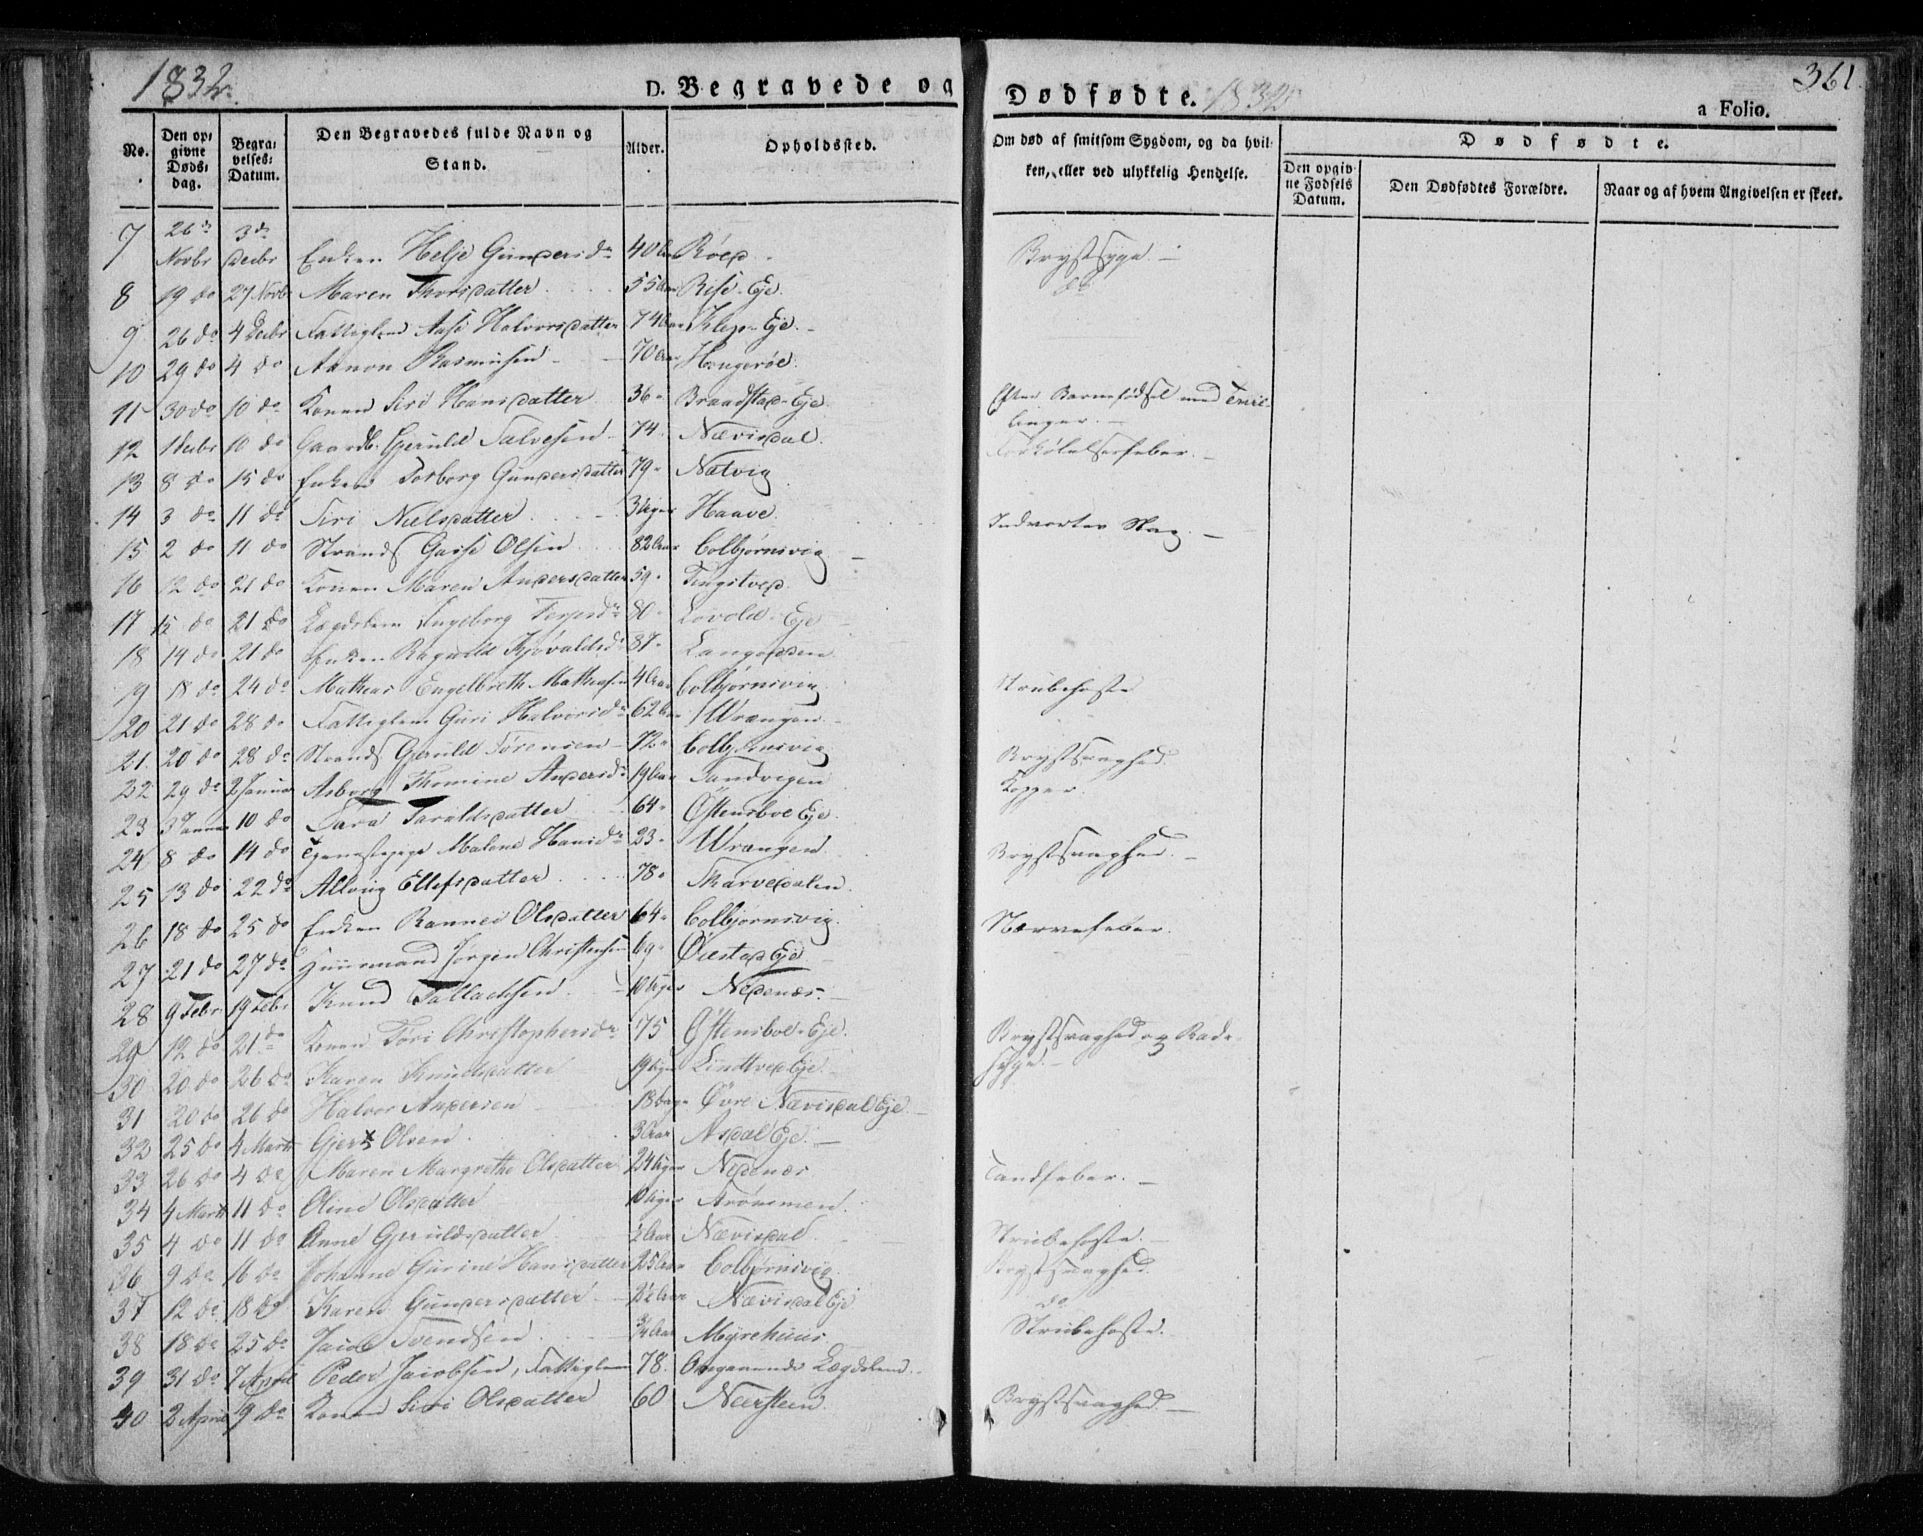 1832.
D. Begravede og
Dødfødte. 1832
361
a Folio.
No.
Den opgivne Dødsdag.
Begravelses-Datum.
Den Begravedes fulde Navn og Stand.
Alder.
Opholdssted.
Om død af smitsom Sygdom, og da hvilken, eller ved ulykkelig Hendelse.
Dødfødte.
Den opgivne Fødsels Datum.
Den Dødfødtes Forældre.
Naar og af hvem Angivelsen er skeet.
7 26de Novbr 3de Decbr Enken Helje Gundersdr 40 Aar Røed. Brystsyge.
8 19 do 27 Novbr Maren Thorsdatter 55 Aar Rise-Eje. do
9 26 do 4 Decbr Fattiglem Aase Halvorsdatter 74 Aar Klep-Eje.
10 29 do 4 do Aanon Rasmusen 70 Aar
11 30 do 10 do Konen Siri Hansdatter 36 " Braadstad-Eje. Efter Barnefødsel med Tvillinger.
12 1 Decbr 10 do Gaardb. Gjeruld Salvesen 74 Nævisdal. Forkølelsesfeber.
13 8 do 15 do Enken Torborg Gundersdatter 79 " Natvig
14 3 do 11 do Siri Nielsdatter 3 Uger Haave.
15 2 do 11 do Strands. Olsen 82 Aar Colbjørnsvig Indvortes Slag.
16 12 do 21 do Konen Maren Andersdatter 59 " Tingstved
17 15 do 21 do Lægdslem Ingeborg Terjesdr 80 " Lovold-Eje
18 14 do 21 do Enken Ragnild 87 "
19 18 do 24 do Mathias Engelbreth Mathiasen 4 Aar Colbjørnsvig Strubehoste
20 21 do 28 do Fattiglem Guri Halvorsdr 62 Aar Wrængen
21 20 do 28 do Strands. Gjeruld Sørensen 72 " Colbjørnsvig Brystsvaghed.
22 29 do 2 Januar Asborg Thomine Andersdr 19 Aar Sandvigen Kopper.
23 3 Januar 10 do Tara Taraldsdatter 64 " Østensboe Eje.
24 8 do 14 do Tjenestepige Malene Hansdr 23 " Wrængen. Brystsvaghed.
25 13 do 22 do Allvig Ellefsdatter 78 " Skarvedalen.
26 18 do 25 do Enken Ranned Olsdatter 64 " Colbjørnsvig. Nervefeber.
27 21 do 27 do Huusmand Jørgen Christensen 69 " Øiestad Eje
28 9 Febr 19 Febr Knud Tallachsen 10 Uger Nedenæs.
29 12 do 21 do Konen Tori Christophersdr 75 Østensboe-Eje. Brystsvaghed og Radesyge.
30 20 do 26 do Karen Knudsdatter 19 Uger Lindtved Eje
31 20 do 26 do Halvor Andersen 18 Dage Øvre Nævisdal Eje.
32 25 do 4 Marts Gjert Olsen. 3 Aar Asdal Eje.
33 26 do 4 do Maren Margrethe Olsdatter 24 Uger Nedenæs Tandfeber.
34 4 Marts 11 do Oline Olsdatter 10 Uger Strømmen.
35 4 do 11 do Anne Gjeruldsdatter ½ Aar Nævisdal. Strubehoste.
36 9 do 16 do Johanne Gurine Hansdatter 25 Aar Colbjørnsvig. Brystsvaghed.
37 12 do 18 do Karen Gundersdatter Aar Nævisdal Eje. do
38 18 do 25 do Svendsen ¾ Aar Myrehuus. Strubehoste.
39 31 do 7 April Peder Jacobsen, Fattiglem 78. Omgaaende Lægdslem.
40 2 April 9 do Konen Siri Olsdatter 60 Neersteen Brystsvaghed.